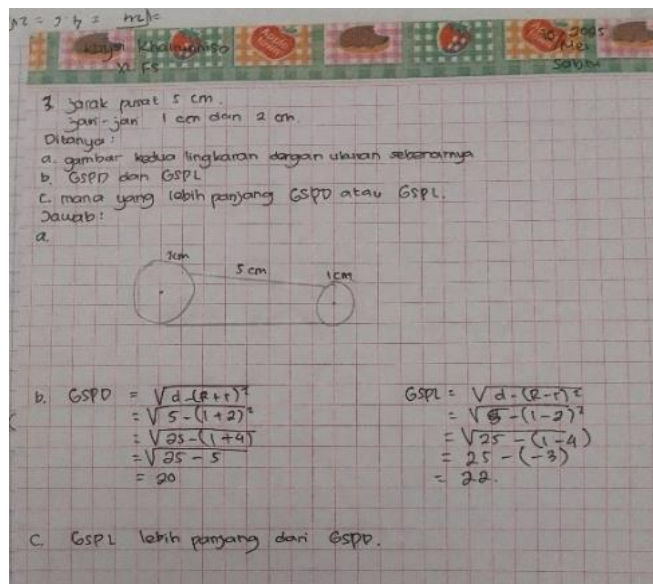 30, 2025
Mei
Sabtu
XI F5
3. Jarak pusat 5 cm.
Jari-jari 1 cm dan 2 cm.
Ditanya:
a. gambar kedua lingkaran dengan ukuran sebenarnya
b. GSPD dan GSPL
c. mana yang lebih panjang GSPD atau GSPL.
Jawab:
a.
2cm
5 cm
1cm
b. GSPD = √d-(R+r)²
= √5-(1+2)²
= √25-(1+4)
= √25-5
= 20
GSPL = √d-(R-r)²
= √5-(1-2)²
= √25-(1-4)
= 25-(-3)
= 22.
C. GSPL lebih panjang dari GSPD.